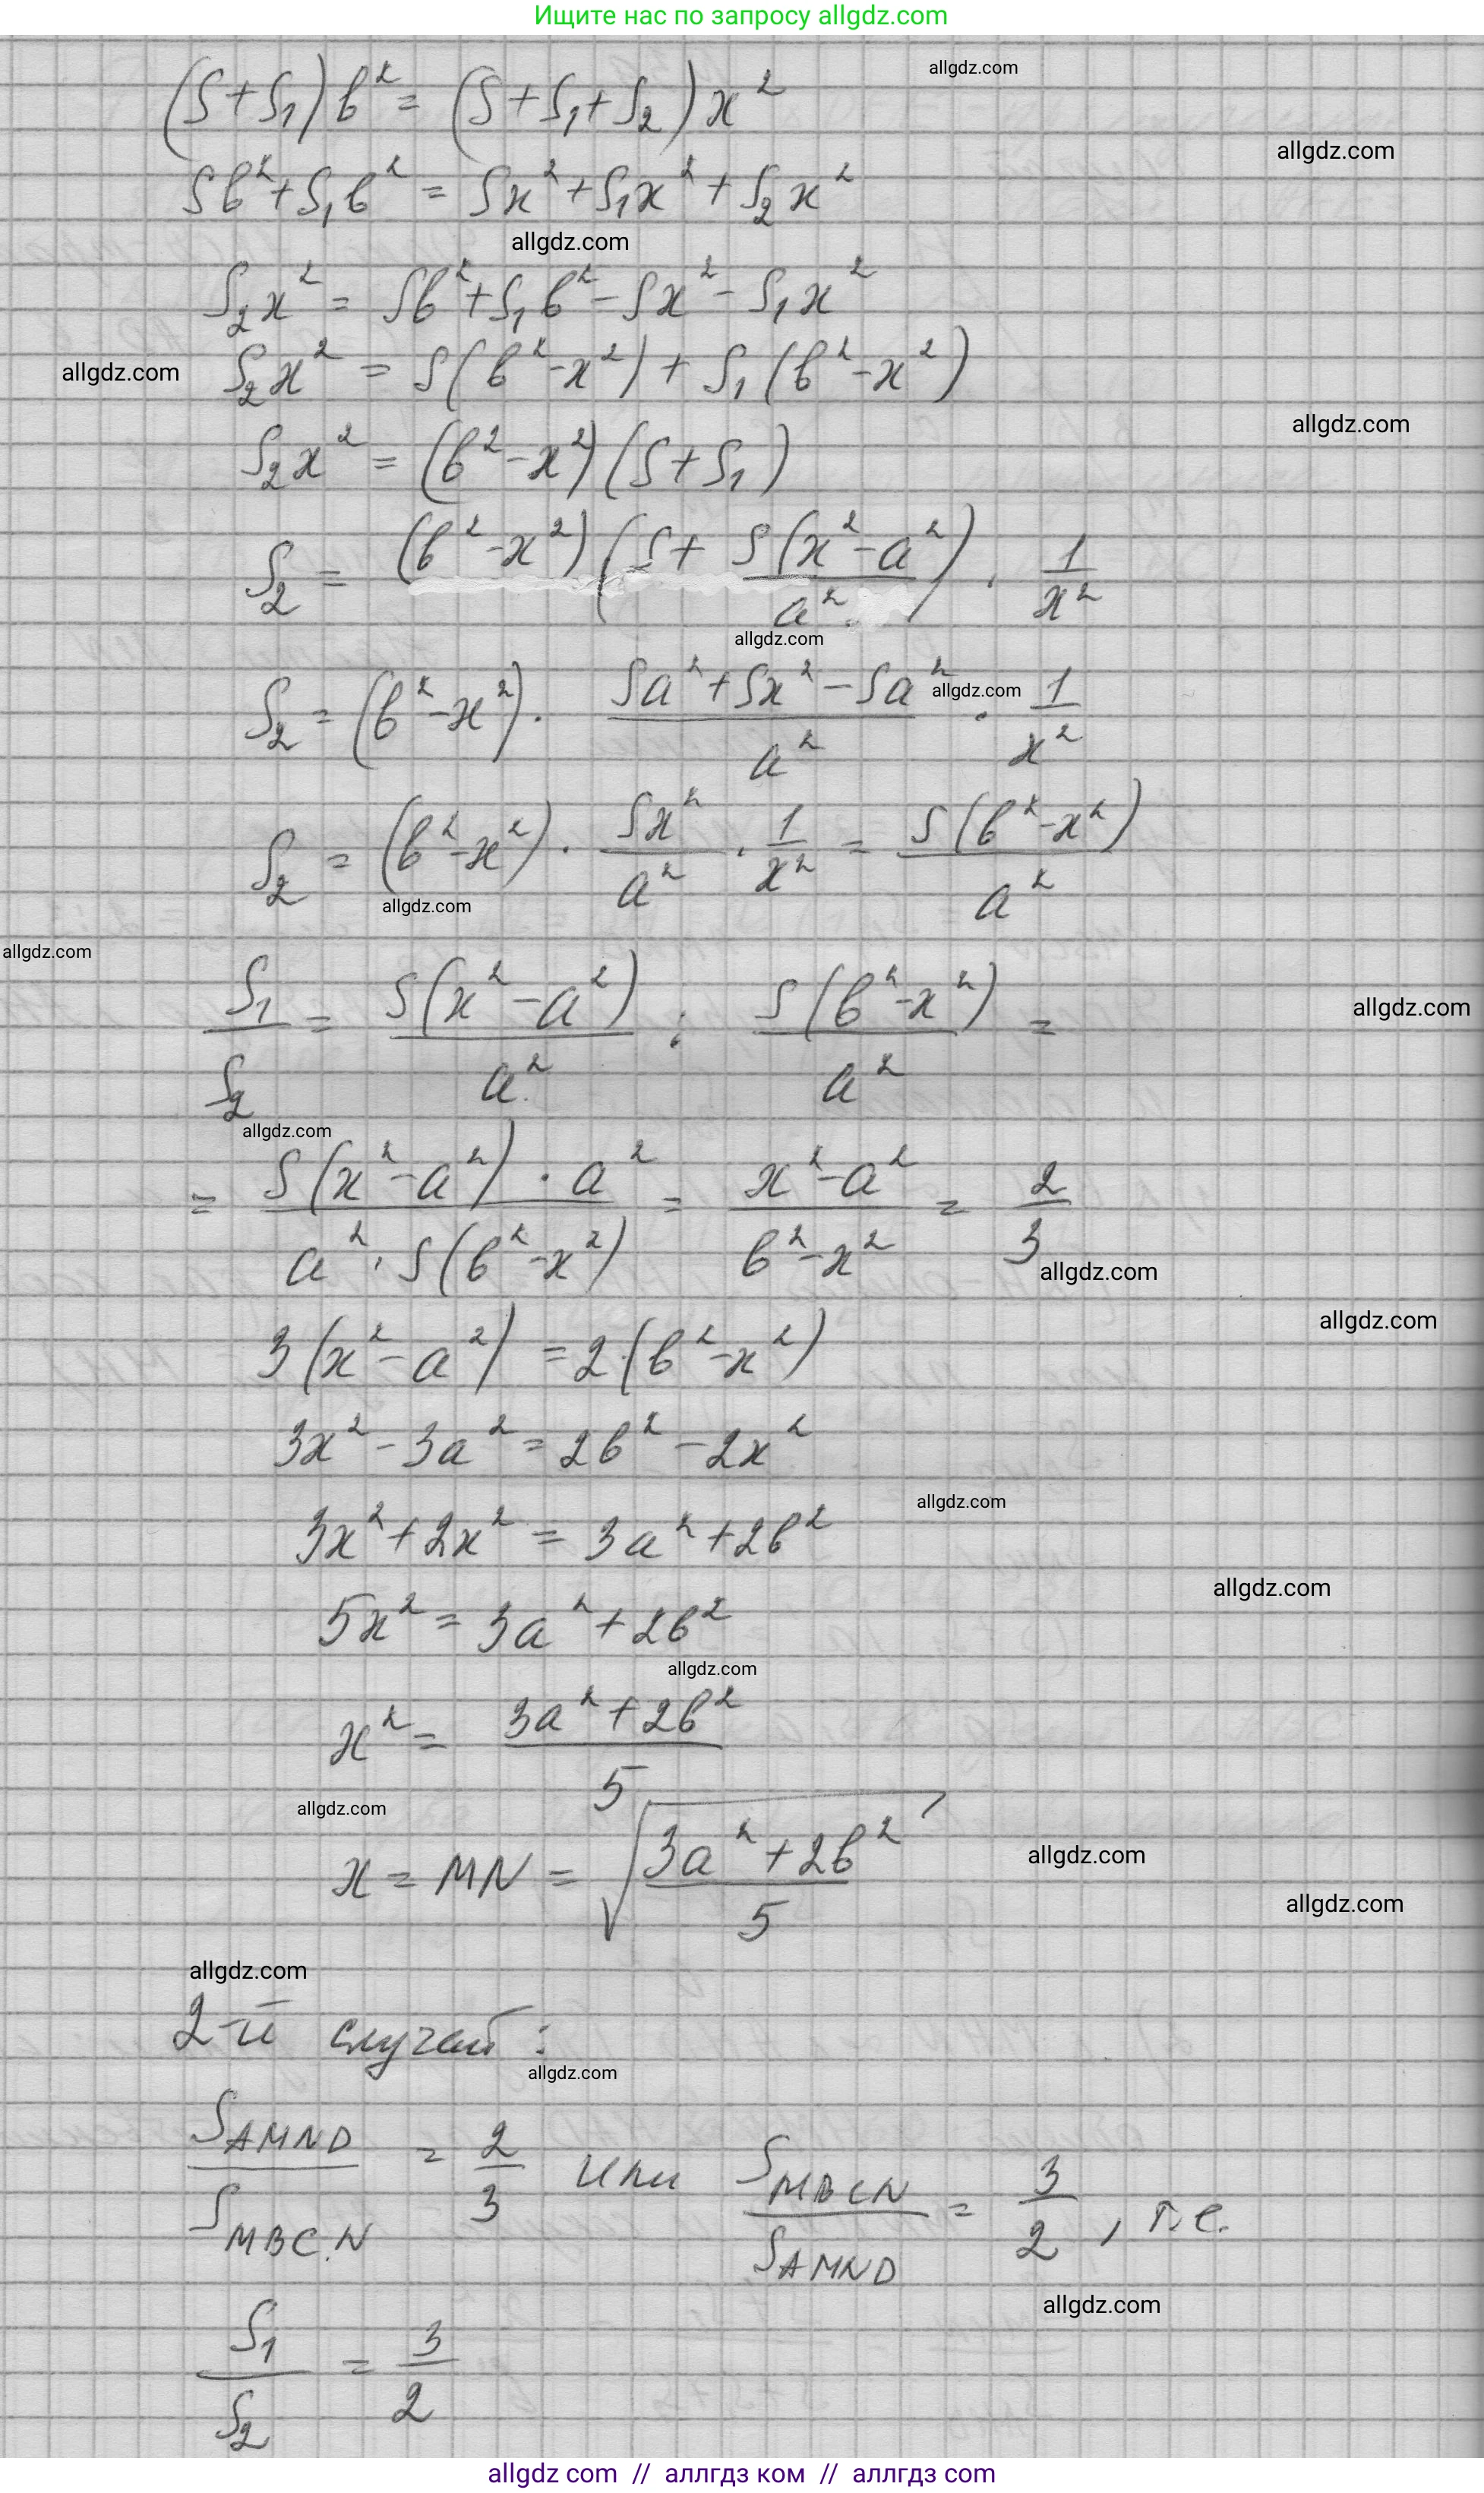 Ищите нас по запросу allgdz.com
allgdz.com
(S+S₁)b² = (S+S₁+S₂)x²
allgdz.com
Sb²+S₁b² = Sx²+S₁x²+S₂x²
allgdz.com
S₂x² = Sb²+S₁b²-Sx²-S₁x²
S₂x² = S(b²-x²)+S₁(b²-x²)
allgdz.com
allgdz.com
S₂x² = (b²-x²)(S+S₁)
S₂ = (b²-x²)(S+ S(x²-a²)/a²) · 1/x²
allgdz.com
S₂ = (b²-x²) · (Sa²+Sx²-Sa²)/a² · 1/x²
allgdz.com
S₂ = (b²-x²) · Sx²/a² · 1/x² = S(b²-x²)/a²
allgdz.com
allgdz.com
S₁/S₂ = S(x²-a²)/a² : S(b²-x²)/a² =
allgdz.com
allgdz.com
= S(x²-a²)·a²/a²·S(b²-x²) = (x²-a²)/(b²-x²) = 2/3
allgdz.com
allgdz.com
3(x²-a²) = 2·(b²-x²)
3x²-3a² = 2b²-2x²
allgdz.com
3x²+2x² = 3a²+2b²
allgdz.com
5x² = 3a²+2b²
allgdz.com
x² = (3a²+2b²)/5
allgdz.com
x = MN = √((3a²+2b²)/5)
allgdz.com
allgdz.com
allgdz.com
2-й случай:
allgdz.com
S_AMND/S_MBCN = 2/3 или S_MBCN/S_AMND = 3/2, т.е.
allgdz.com
S₁/S₂ = 3/2
allgdz com // аллгдз ком // аллгдз com